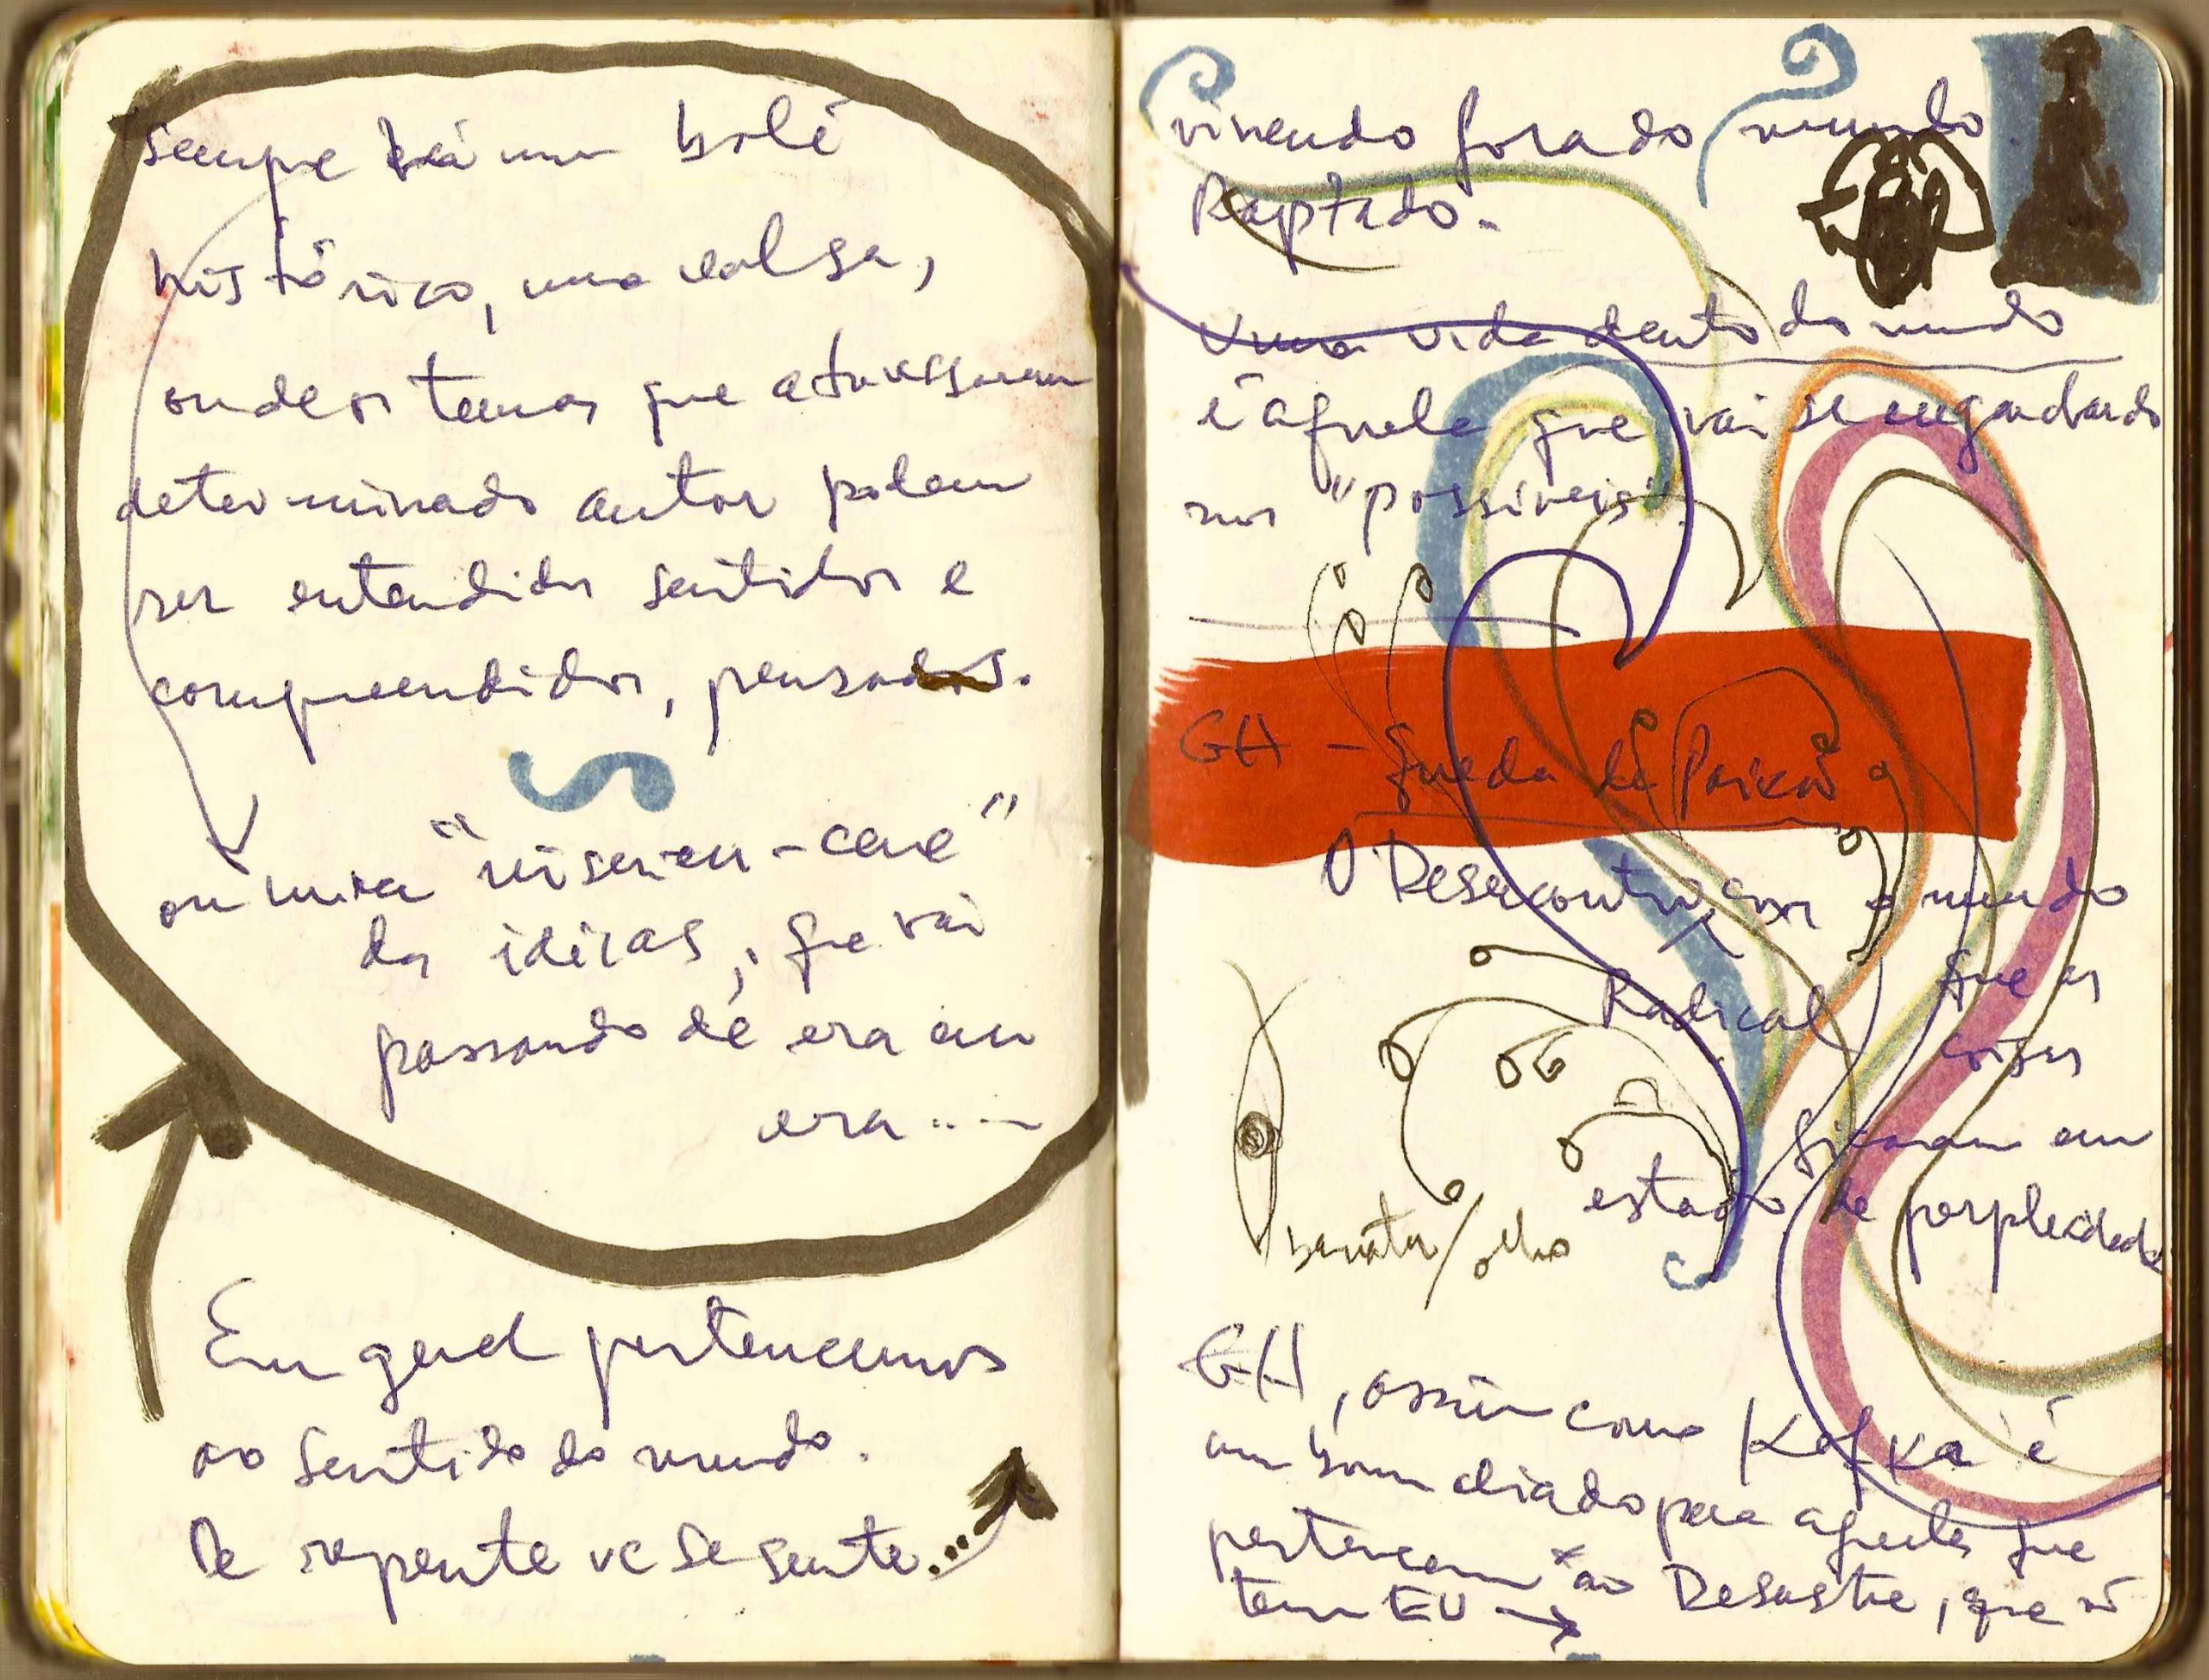 sempre há um balé
histórico, uma valsa,
onde os temas que atravessam
determinado autor podem
ser entendidos sentidos e
compreendidos, pensados.
ou uma "mise-en-cene"
das idéias, que vai
passando de era em
era....
Em geral pertencemos
ao sentido do mundo.
De repente vc se sente...
vivendo fora do mundo.
Raptado.
Uma vida dentro do mundo
é aquela que vai se engandando
nos "possíveis".
GH - Queda da Paixão
O Desencontro com o mundo
Radical que as
coisas
ficaram em
estado de perplexidade
barata/olho
GH, assim como Kafka é
um bom aliado para aqueles que
pertencem ao Desastre, que ñ
tem EU →